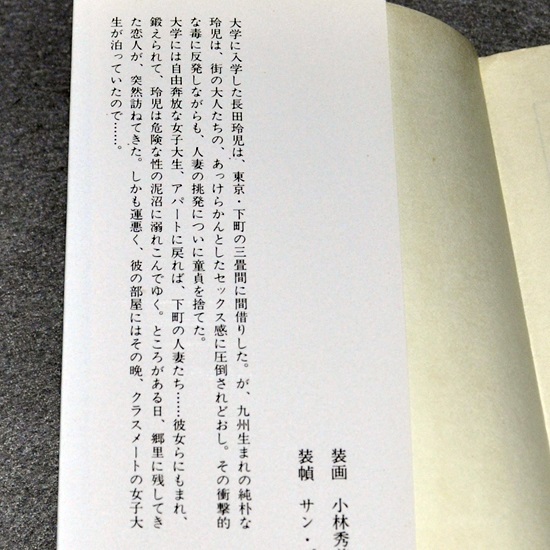 大学に入学した長田玲児は、東京・下町の三畳間に間借りした。が、九州生まれの純朴な
玲児は、街の大人たちの、あっけらかんとしたセックス感に圧倒されどおし。その衝撃的
な毒に反発しながらも、人妻の挑発についに童貞を捨てた。
大学には自由奔放な女子大生、アパートに戻れば、下町の人妻たち……彼女らにもまれ、
鍛えられて、玲児は危険な性の泥沼に溺れこんでゆく。ところがある日、郷里に残してき
た恋人が、突然訪ねてきた。しかも運悪く、彼の部屋にはその晩、クラスメートの女子大
生が泊っていたので……。
装画 小林秀
装幀 サン・